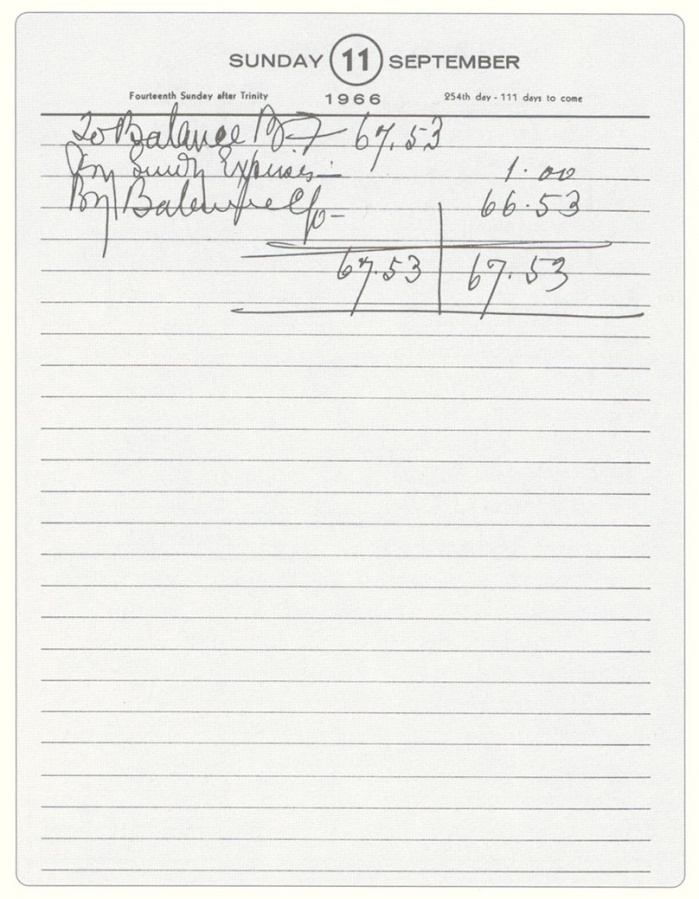 SUNDAY 11 SEPTEMBER
Fourteenth Sunday after Trinity 1966 254th day - 111 days to come
To Balance B.F 67.53
By Sundry Expenses — 1.00
By Balance C/o — 66.53
67.53 67.53